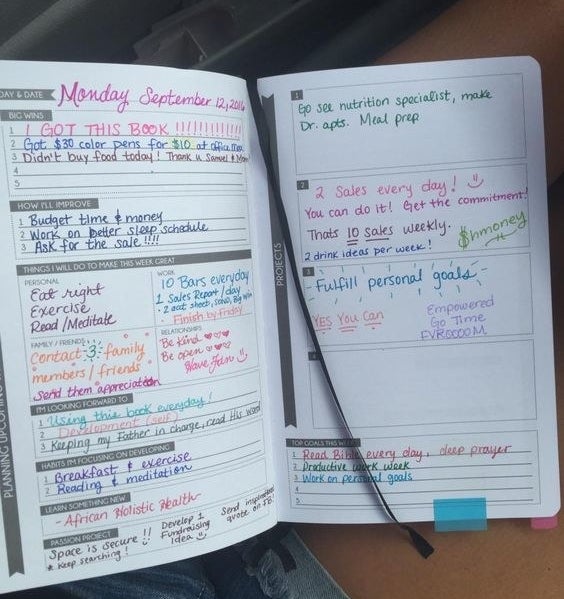 DAY & DATE
Monday September 12, 2016
BIG WINS
1 I GOT THIS BOOK !!!!!!!!!!!!!
2 Got $30 color pens for $10 at office max
3 Didn't buy food today! Thank u Samuel & Mom
4
5
HOW I'LL IMPROVE
1 Budget time & money
2 Work on better sleep schedule
3 Ask for the sale !!!!
THINGS I WILL DO TO MAKE THIS WEEK GREAT
PERSONAL
Eat right
Exercise
Read/Meditate
WORK
10 Bars everyday
1 Sales Report / day
Finish by friday
FAMILY / FRIENDS
Contact 3 family
members / friends
Send them appreciation
RELATIONSHIPS
Be kind ♥♥♥
Be open ♥♥♥
Have Fun
I'M LOOKING FORWARD TO
1 Using this book everyday!
2 Development (self)
3 Keeping my Father in charge, read His word
HABITS I'M FOCUSING ON DEVELOPING
1 Breakfast & exercise
2 Reading & meditation
LEARN SOMETHING NEW
- African Holistic Health
PASSION PROJECT
Space is secure !!
* Keep searching!
Develop 1
Fundraising
idea
Send
quote on
PLANNING UPCOMING
PROJECTS
1
Go see nutrition specialist, make
Dr. apts. Meal prep
2
2 Sales every day!
You can do it! Get the commitment!
Thats 10 sales weekly.
2 drink ideas per week!
3
Fulfill personal goals
YES You Can
Empowered
Go Time
4
TOP GOALS THIS WEEK
1 Read Bible every day, deep prayer
2 Productive work week
3 Work on personal goals
4
5